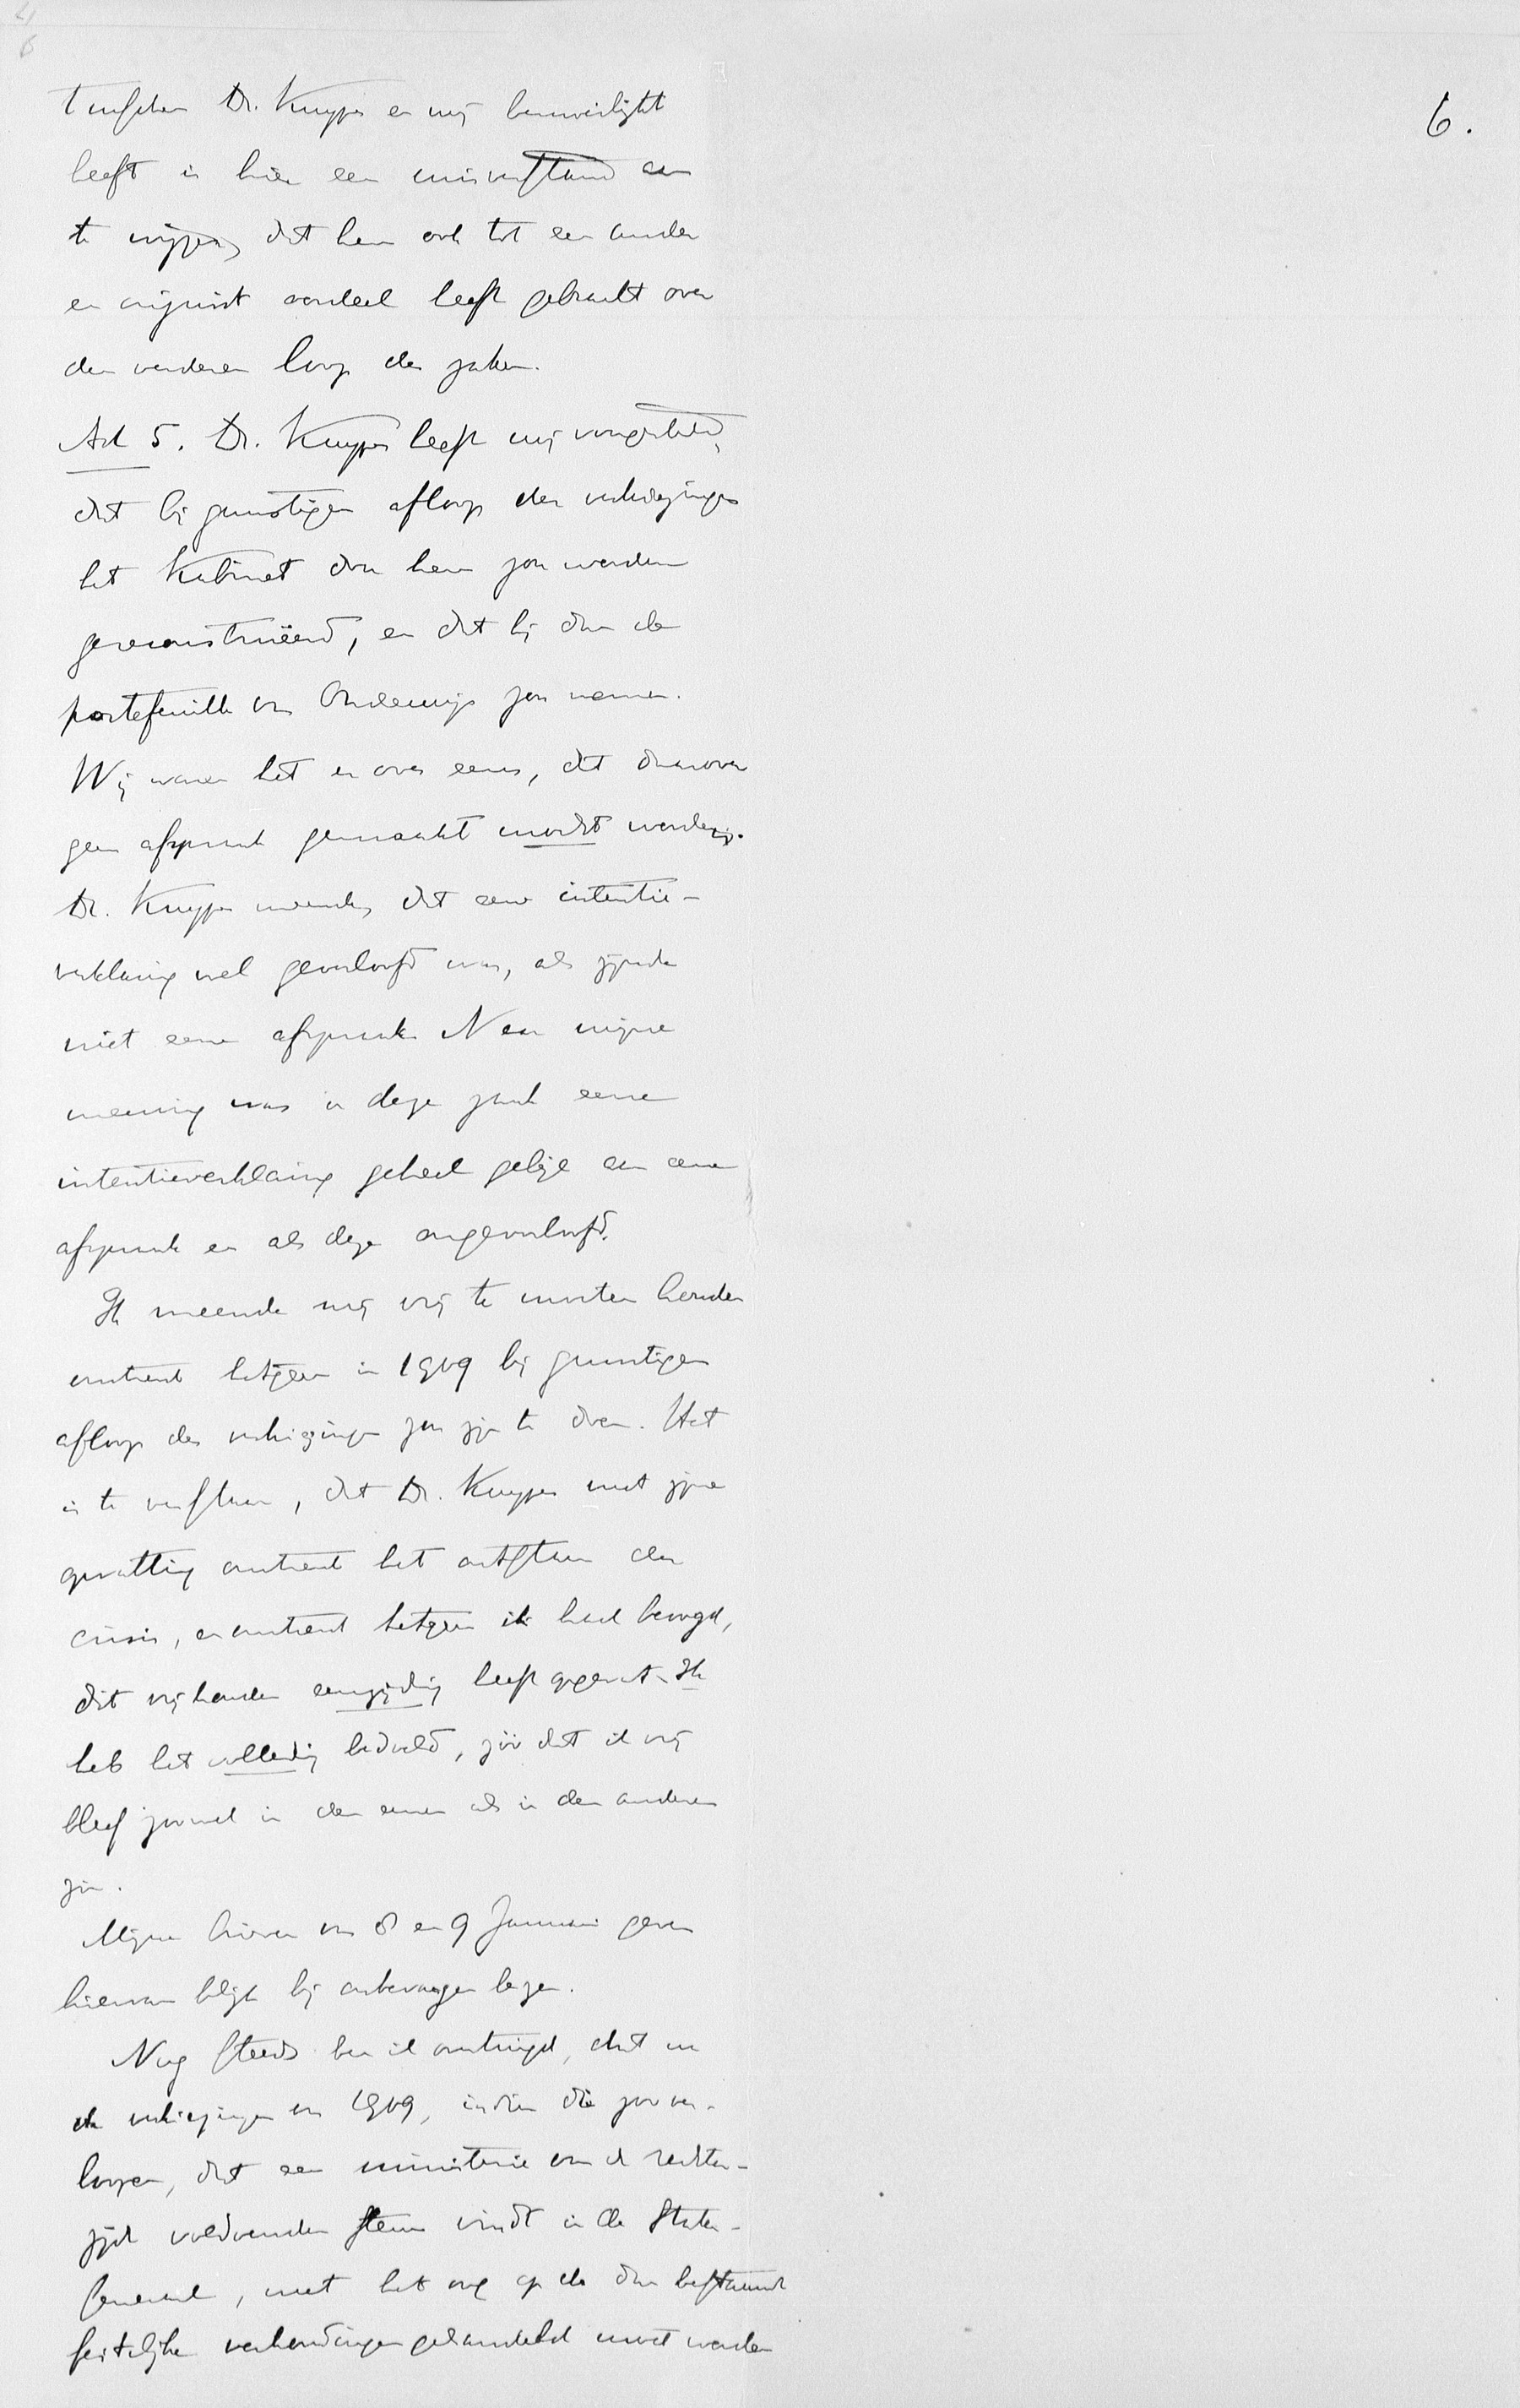 6.
tusschen Dr. Kuyper en mij bemoeilijkt
heeft is hier een misverstand aan
te wijzen, dat hem ook tot een ander
en onjuist oordeel heeft gebracht over
den verderen loop der zaken.
Ad 5. Dr. Kuyper heeft mij voorgesteld,
dat bij gunstigen afloop der verkiezingen
het Kabinet door hem zou worden
gereconstrueerd, en dat hij dan de
portefeuille van Onderwijs zou nemen.
Wij waren het er over eens, dat daarover
geen afspraak gemaakt mocht worden.
Dr. Kuyper meende, dat eene intentie-
verklaring wel geoorloofd was, als zijnde
niet eene afspraak. Naar mijne
meening was in deze zaak eene
intentieverklaring geheel gelijk aan eene
afspraak en als deze ongeoorloofd.
Ik meende mij vrij te moeten houden
omtrent hetgeen in 1909 bij gunstigen
afloop der verkiezingen zou zijn te doen. Het
is te verstaan, dat Dr. Kuyper met zijne
opvatting omtrent het ontstaan der
crisis, en omtrent hetgeen ik had beoogd,
dit vrijhouden eenzijdig heeft opgevat. Ik
heb het volledig bedoeld, zóó dat ik vrij
bleef zoowel in den eenen als in den anderen
zin.
Mijne brieven van 8 en 9 Januari geven
hiervan blijk bij onbevangen lezen.
Nog steeds ben ik overtuigd, dat na
de verkiezingen van 1909, indien die zoo ver-
loopen, dat een ministerie van de rechter-
zijde voldoenden steun vindt in de Staten-
Generaal, met het oog op de dan bestaande
feitelijke verhoudingen gehandeld moet worden